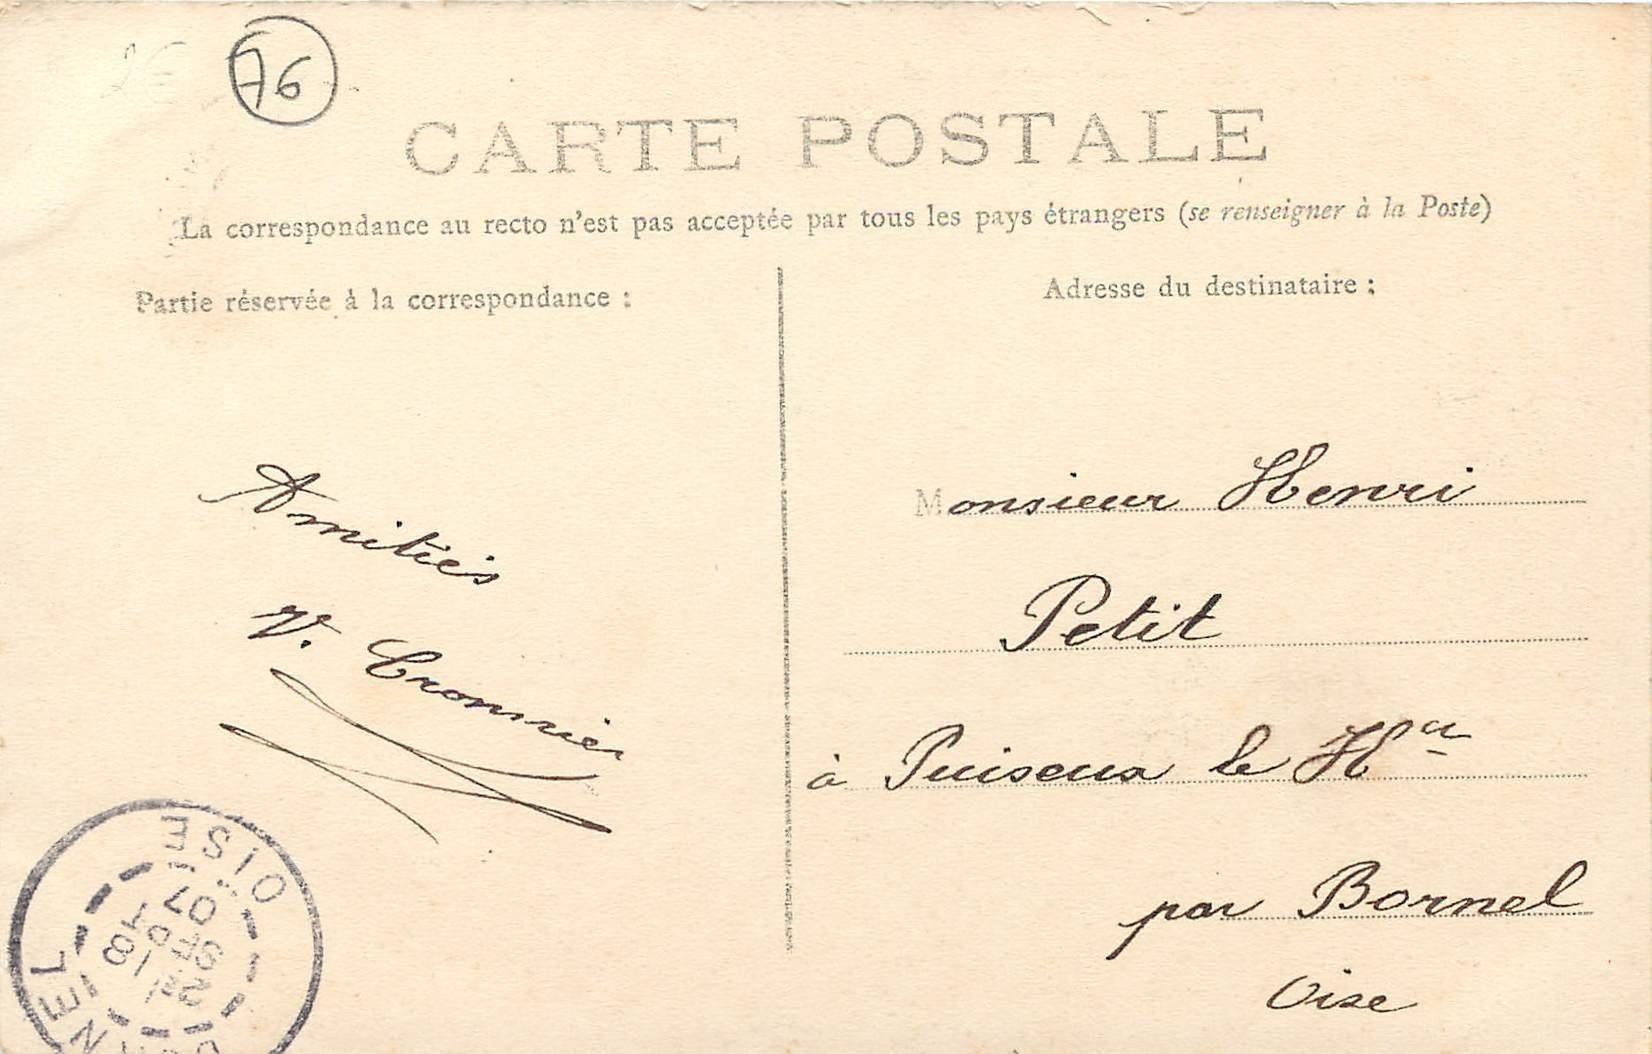 76
CARTE POSTALE
La correspondance au recto n'est pas acceptée par tous les pays étrangers (se renseigner à la Poste)
Partie réservée à la correspondance :
Adresse du destinataire :
Amitiés
V. Cronnier
Monsieur Henri
Petit
à Puiseux le Her
par Bornel
Oise
OISE
18
SEPT
07
NEL